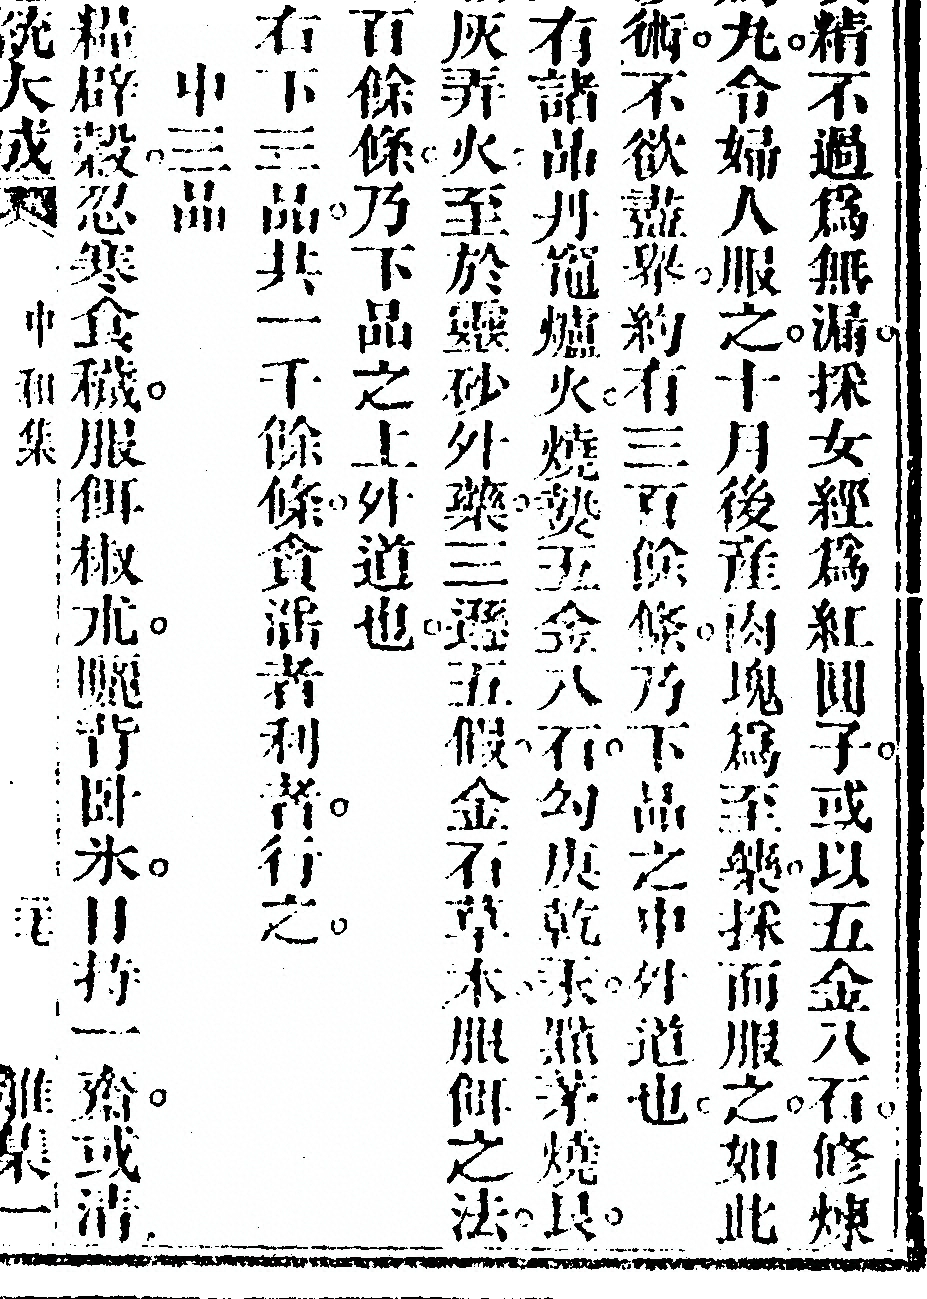 精不過爲無漏。採女經爲紅圓子。或以五金八石。修煉
丸。令婦人服之。十月後產肉塊爲至藥。採而服之。如此
術。不欲盡舉。約有三百餘條。乃下品之中外道也。
有諸品丹竈爐火。燒爇五金八石。勾庚乾汞。點茅燒艮。
灰弄火。至於靈砂外藥。三遜五假。金石草木。服餌之法。
百餘條。乃下品之上外道也。
右下三品。共一千餘條。貪淫者利者。行之。
中三品
糧辟穀。忍寒食穢。服餌椒朮。曬背臥氷。日持一齋。或清
統大成
中和集
雜集一